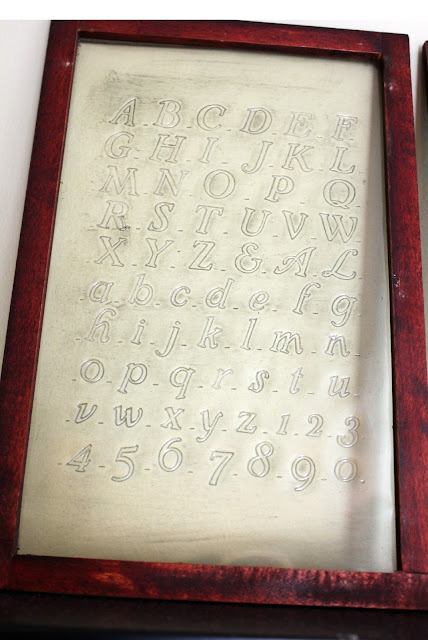 A B C D E F
G H I J K L
M N O P Q
R S T U V W
X Y Z & A L
a b c d e f g
h i j k l m n
o p q r s t u
v w x y z 1 2 3
4 5 6 7 8 9 0